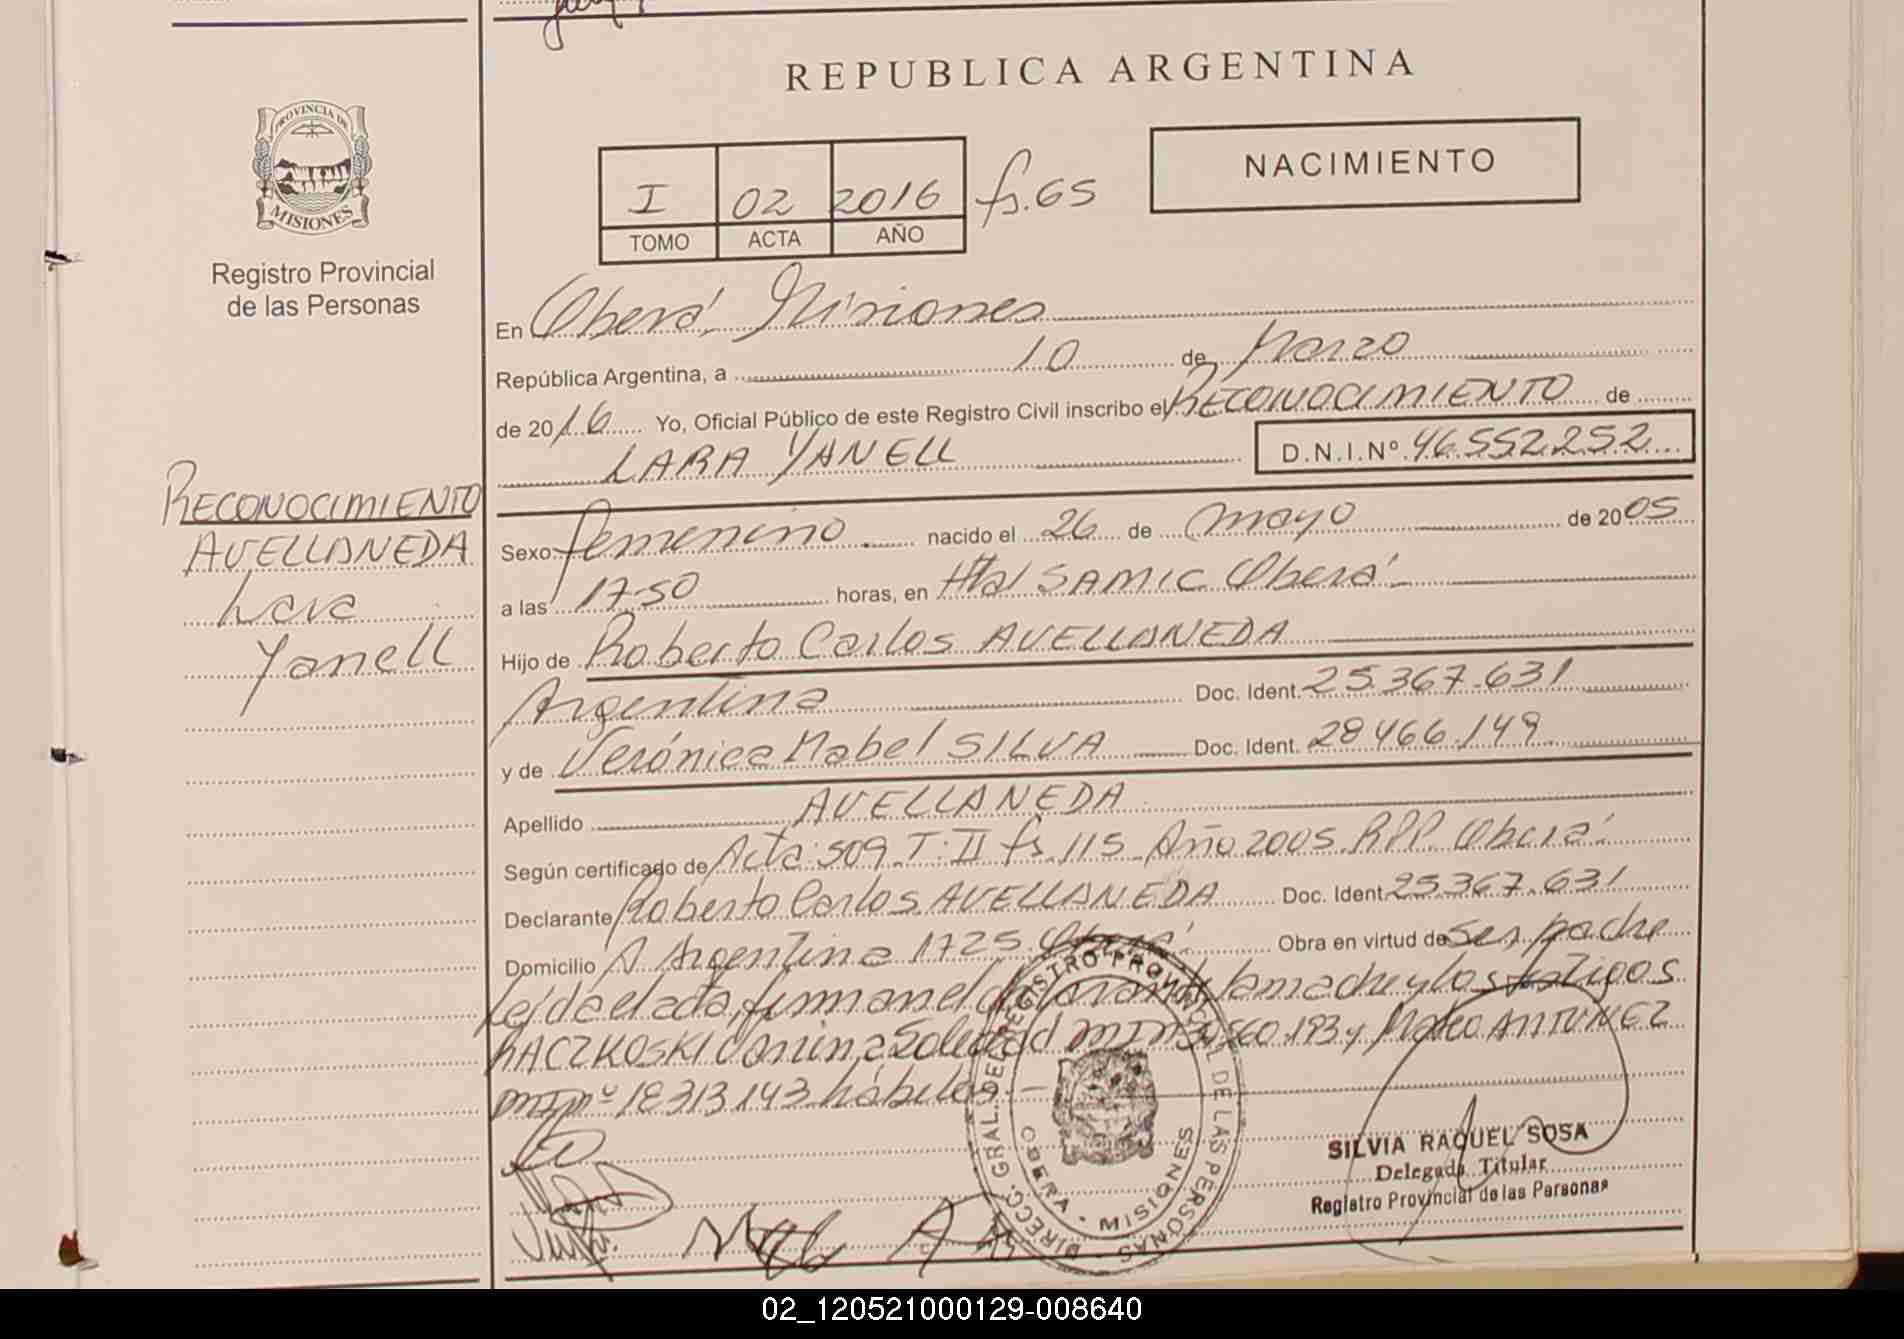 REPUBLICA ARGENTINA
PROVINCIA DE
MISIONES
Registro Provincial
de las Personas
I 02 2016 fs. 65
TOMO ACTA AÑO
NACIMIENTO
En Oberá, Misiones
República Argentina, a 10 de Marzo
de 2016 Yo, Oficial Público de este Registro Civil inscribo el RECONOCIMIENTO de
LARA YANELL D.N.I.Nº 46.552.252
RECONOCIMIENTO
AVELLANEDA
Lara
Yanell
Sexo femenino nacido el 26 de mayo de 2005
a las 17-50 horas, en Htal SAMIC Oberá
Hijo de Roberto Carlos AVELLANEDA
Argentina Doc. Ident. 25.367.631
y de Verónica Mabel SILVA Doc. Ident. 28466.149
Apellido AVELLANEDA
Según certificado de Acta 509 T. II fs 115 Año 2005 RPP. Oberá
Declarante Roberto Carlos AVELLANEDA Doc. Ident. 25.367.631
Domicilio Argentina 1725 Oberá Obra en virtud de ser padre
Leída el acta, firman el declarante, la madre y los testigos
Soledad y Mateo ANTUNEZ
MI nº 18313.143 hábiles
DIRECC. GRAL. DEL REGISTRO PROVINCIAL DE LAS PERSONAS
OBERA - MISIONES
SILVIA RAQUEL SOSA
Delegada Titular
Registro Provincial de las Personas
02_120521000129-008640